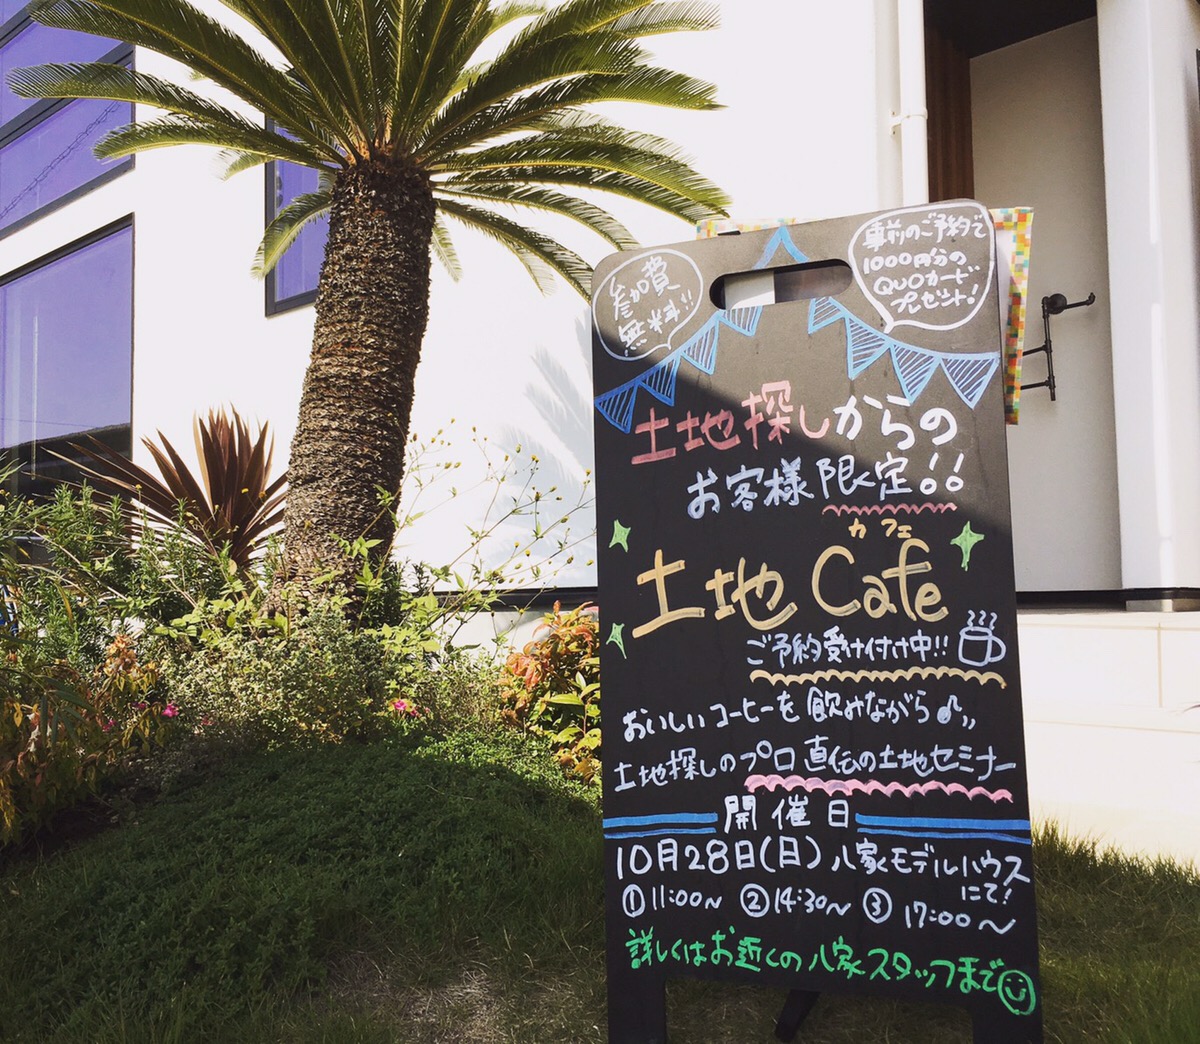 参加費
無料!!
事前のご予約で
1000円分の
QUOカード
プレゼント!
土地探しからの
お客様限定!!
カフェ
土地Cafe
ご予約受け付け中!!
おいしいコーヒーを飲みながら♪,,
土地探しのプロ直伝の土地セミナー
開催日
10月28日(日)八家モデルハウス
にて!
①11:00~ ②14:30~ ③17:00~
詳しくはお近くの八家スタッフまで☺